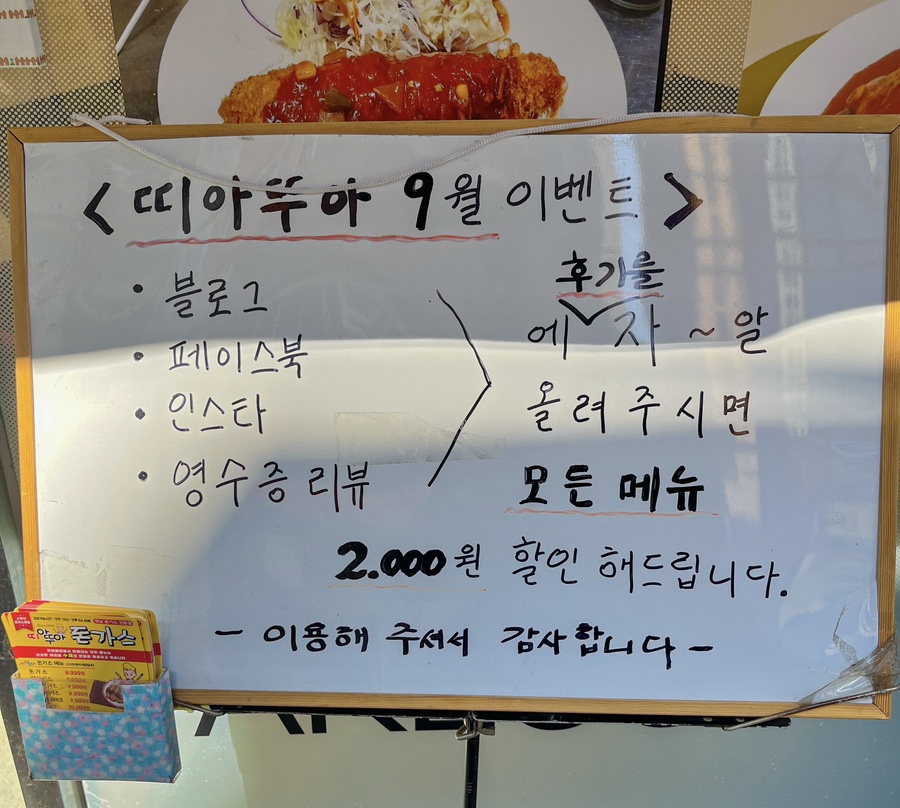 < 띠아뚜아 9월 이벤트 >
• 블로그
• 페이스북
• 인스타
• 영수증 리뷰
후기를
에 자 ~ 알
올려 주시면
모든 메뉴
2.000원 할인 해드립니다.
- 이용해 주셔서 감사합니다 -
돈가스